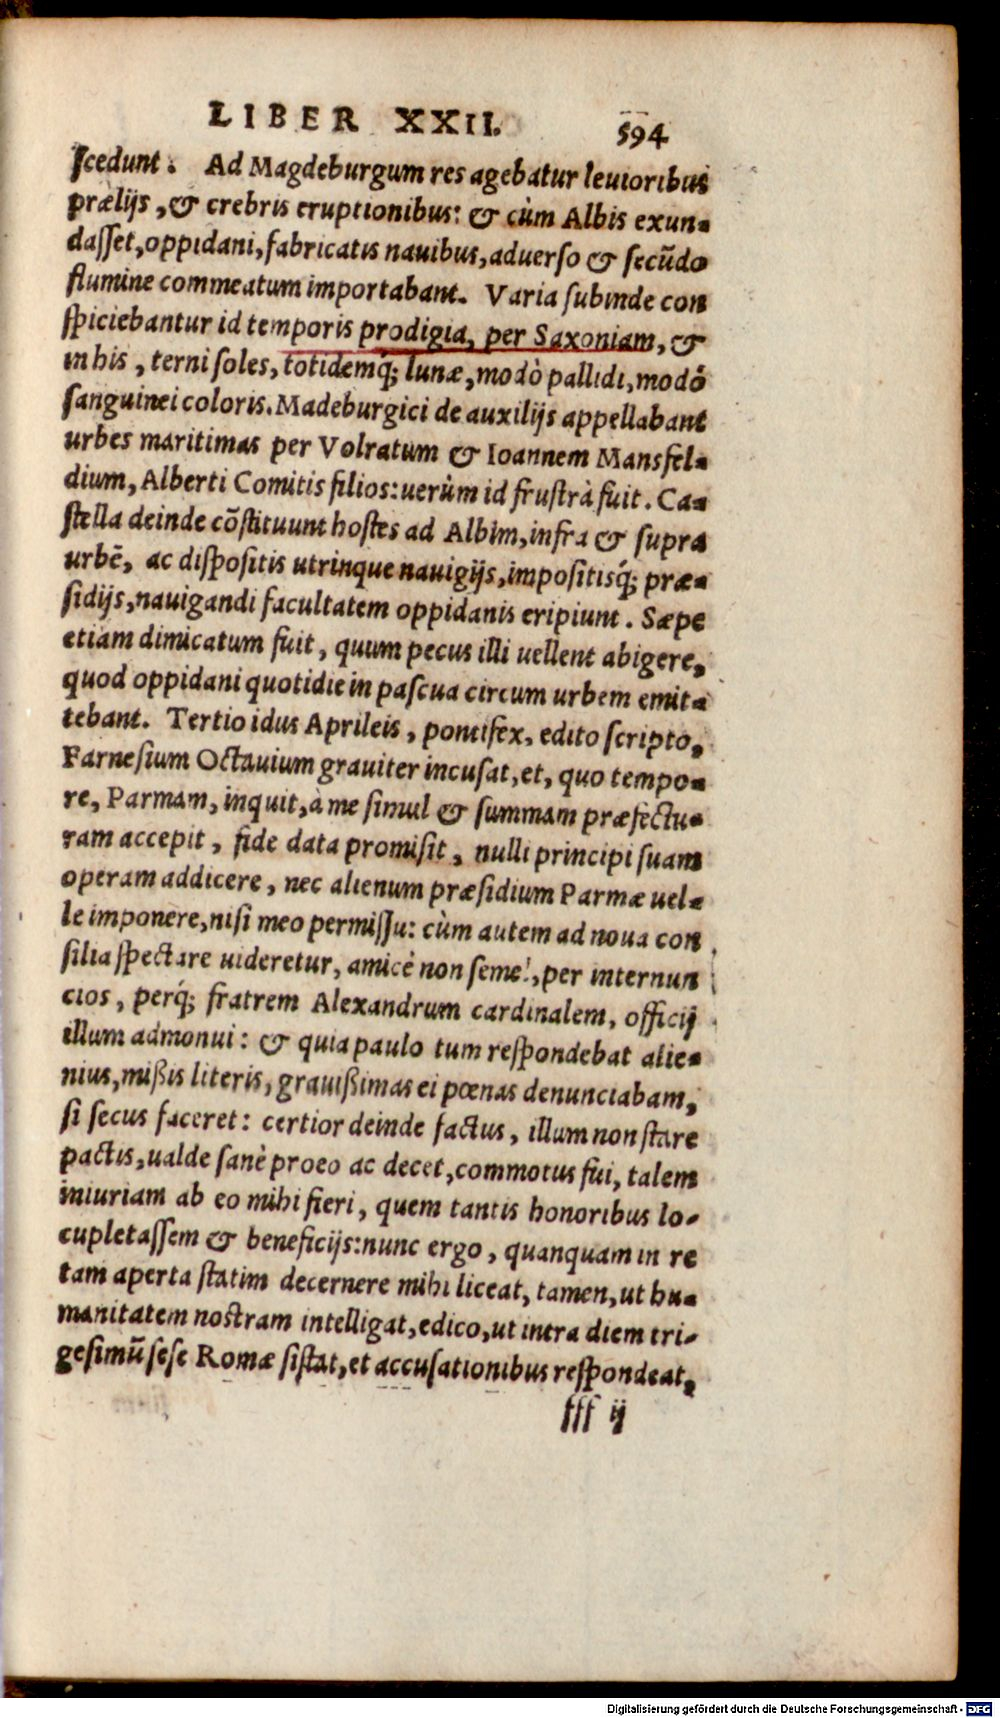 LIBER XXII. 594
ſcedunt. Ad Magdeburgum res agebatur leuioribus
prælijs, & crebris eruptionibus: & cùm Albis exun-
daſſet, oppidani, fabricatis nauibus, aduerſo & ſecūdo
flumine commeatum importabant. Varia ſubinde con
ſpiciebantur id temporis prodigia, per Saxoniam, &
in his, terni ſoles, totidemq́; lunæ, modò pallidi, modò
ſanguinei coloris. Madeburgici de auxilijs appellabant
urbes maritimas per Volratum & Ioannem Mansfel-
dium, Alberti Comitis filios: uerùm id fruſtrà fuit. Ca-
ſtella deinde cōſtituunt hoſtes ad Albim, infra & ſupra
urbē, ac diſpoſitis utrinque nauigijs, impoſitisq́; præ-
ſidijs, nauigandi facultatem oppidanis eripiunt. Sæpe
etiam dimicatum fuit, quum pecus illi uellent abigere,
quod oppidani quotidie in paſcua circum urbem emit-
tebant. Tertio idus Aprileis, pontifex, edito ſcripto,
Farneſium Octauium grauiter incuſat, et, quo tempo-
re, Parmam, inquit, à me ſimul & ſummam præfectu-
ram accepit, fide data promiſit, nulli principi ſuam
operam addicere, nec alienum præſidium Parmæ uel-
le imponere, niſi meo permiſſu: cùm autem ad noua con
ſilia ſpectare uideretur, amicè non ſemel, per internun
cios, perq́; fratrem Alexandrum cardinalem, officij
illum admonui: & quia paulo tum reſpondebat alie-
nius, mißis literis, grauißimas ei pœnas denunciabam,
ſi ſecus faceret: certior deinde factus, illum non ſtare
pactis, ualde ſanè proeo ac decet, commotus fui, talem
iniuriam ab eo mihi fieri, quem tantis honoribus lo-
cupletaſſem & beneficijs: nunc ergo, quanquam in re
tam aperta ſtatim decernere mihi liceat, tamen, ut hu-
manitatem noſtram intelligat, edico, ut intra diem tri-
geſimū ſeſe Romæ ſiſtat, et accuſationibus reſpondeat,
ſſſ ij
Digitalisierung gefördert durch die Deutsche Forschungsgemeinschaft - DFG